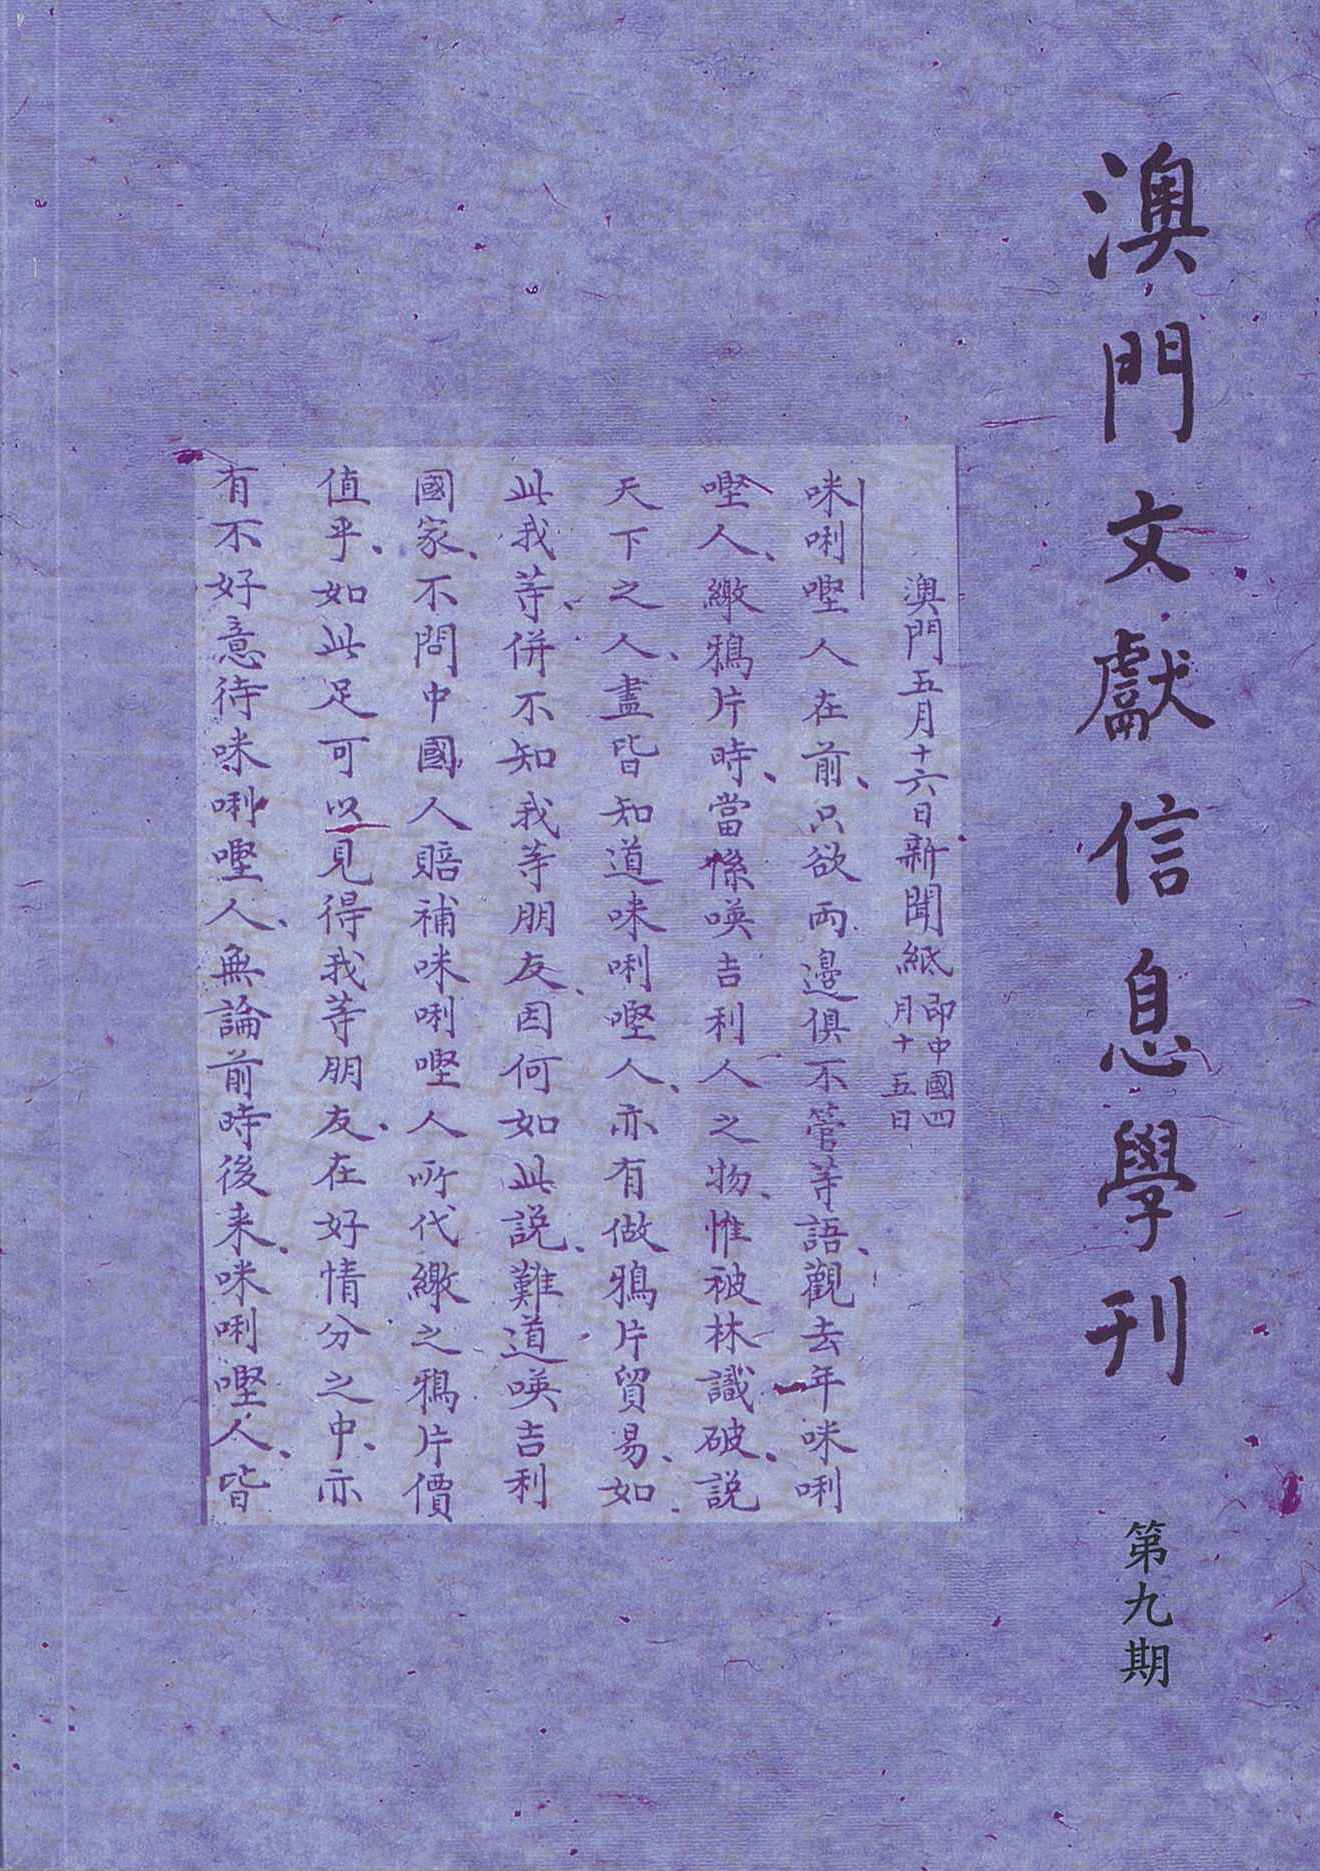 澳門文獻信息學刊
第九期
澳門五月十六日新聞紙 即中國四月十五日
咪唎㗧人在前、只欲兩邊俱不管等語、觀去年咪唎
㗧人、繳鴉片時、當係𠸄吉利人之物、惟被林識破、説
天下之人、盡皆知道咪唎㗧人、亦有做鴉片貿易、如
此我等、併不知我等朋友、因何如此説、難道𠸄吉利
國家、不問中國人賠補咪唎㗧人所代繳之鴉片價
值乎、如此足可以見得我等朋友、在好情分之中、亦
有不好意待咪唎㗧人、無論前時後来、咪唎㗧人、皆